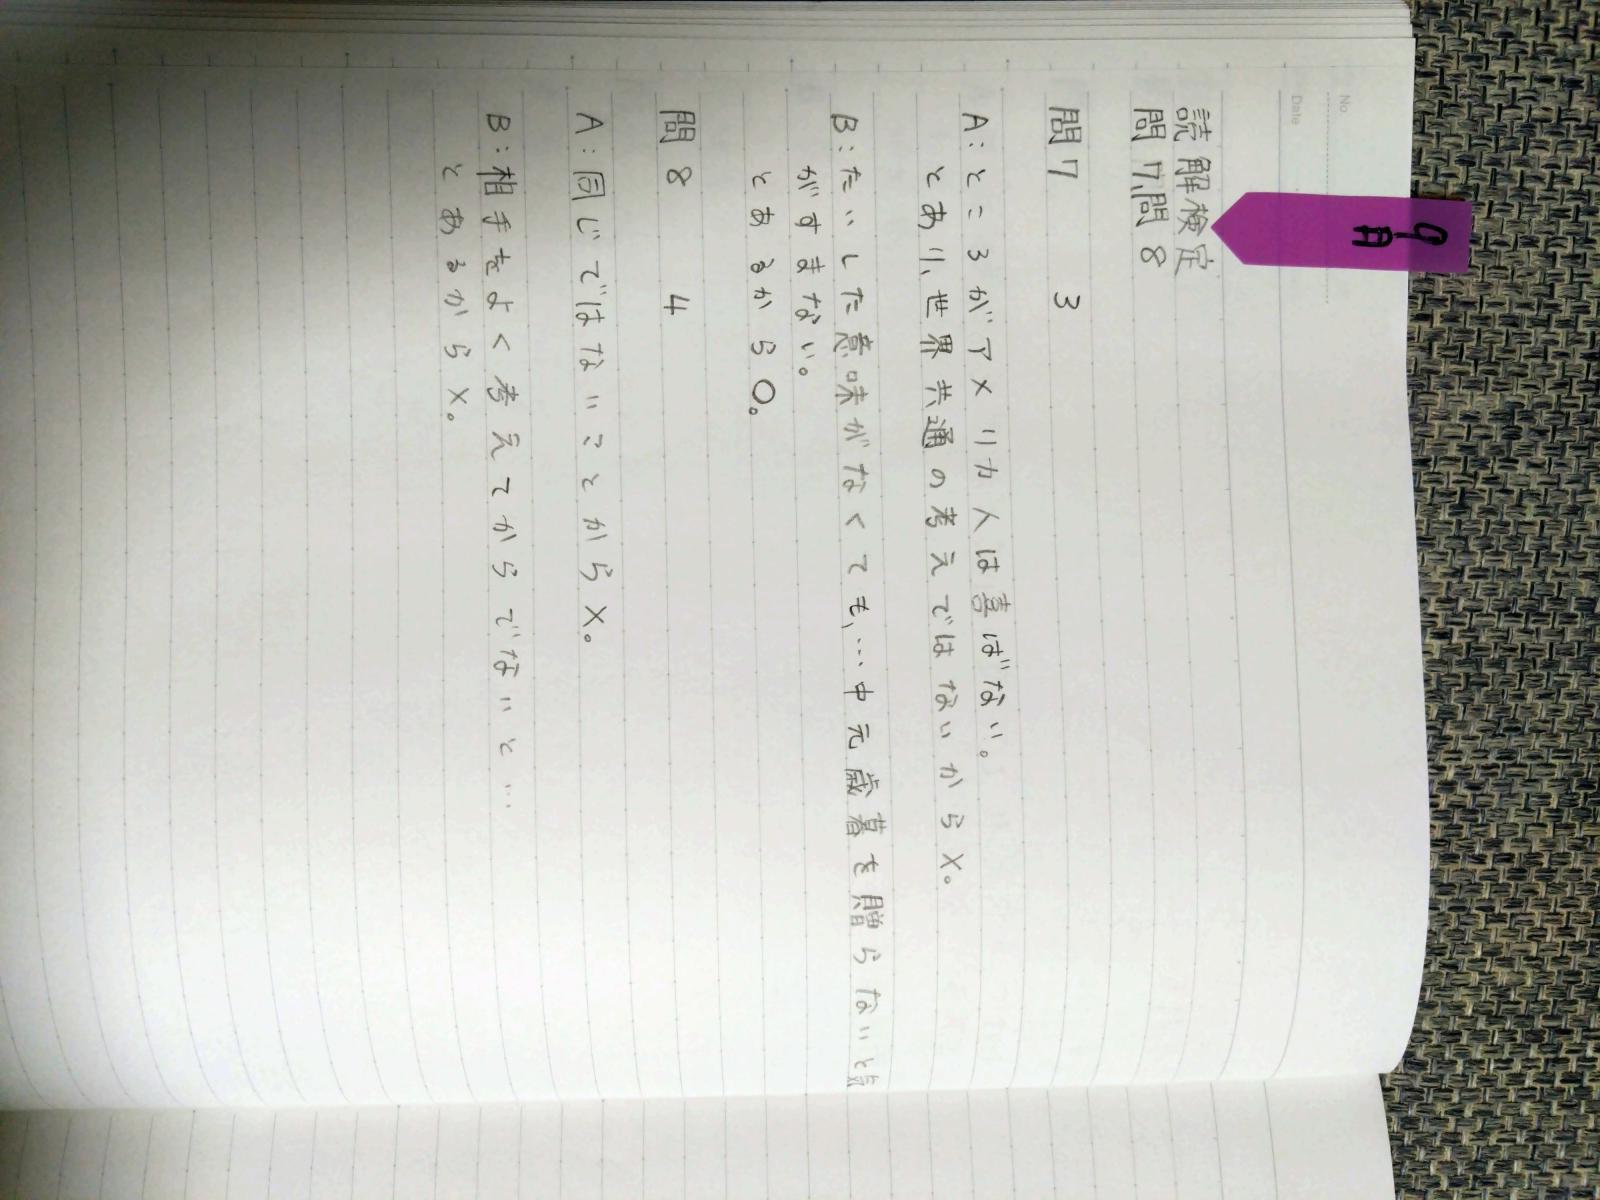 No
Date
9月
読解検定
問7,問8
問7 3
A:ところがアメリカ人は喜ばない。
とあり、世界共通の考えではないから×。
B:たいした意味がなくても,…中元歳暮を贈らないと気
がすまない。
とあるから○。
問8 4
A:同じではないことから×。
B:相手をよく考えてからでないと…
とあるから×。